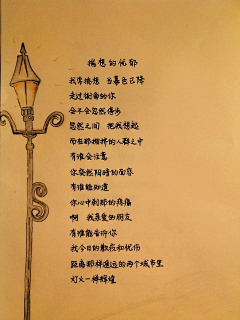 揣想的忧郁
我常揣想 当暮色已降
走过街角的你
会不会忽然停步
忽然之间 把我想起
而在那拥挤的人群之中
有谁会注意
你突然阴暗的面容
有谁能知道
你心中刹那的疼痛
啊 我亲爱的朋友
有谁能告诉你
我今日的歉疚和忧伤
距离那样遥远的两个城市里
灯火一样辉煌